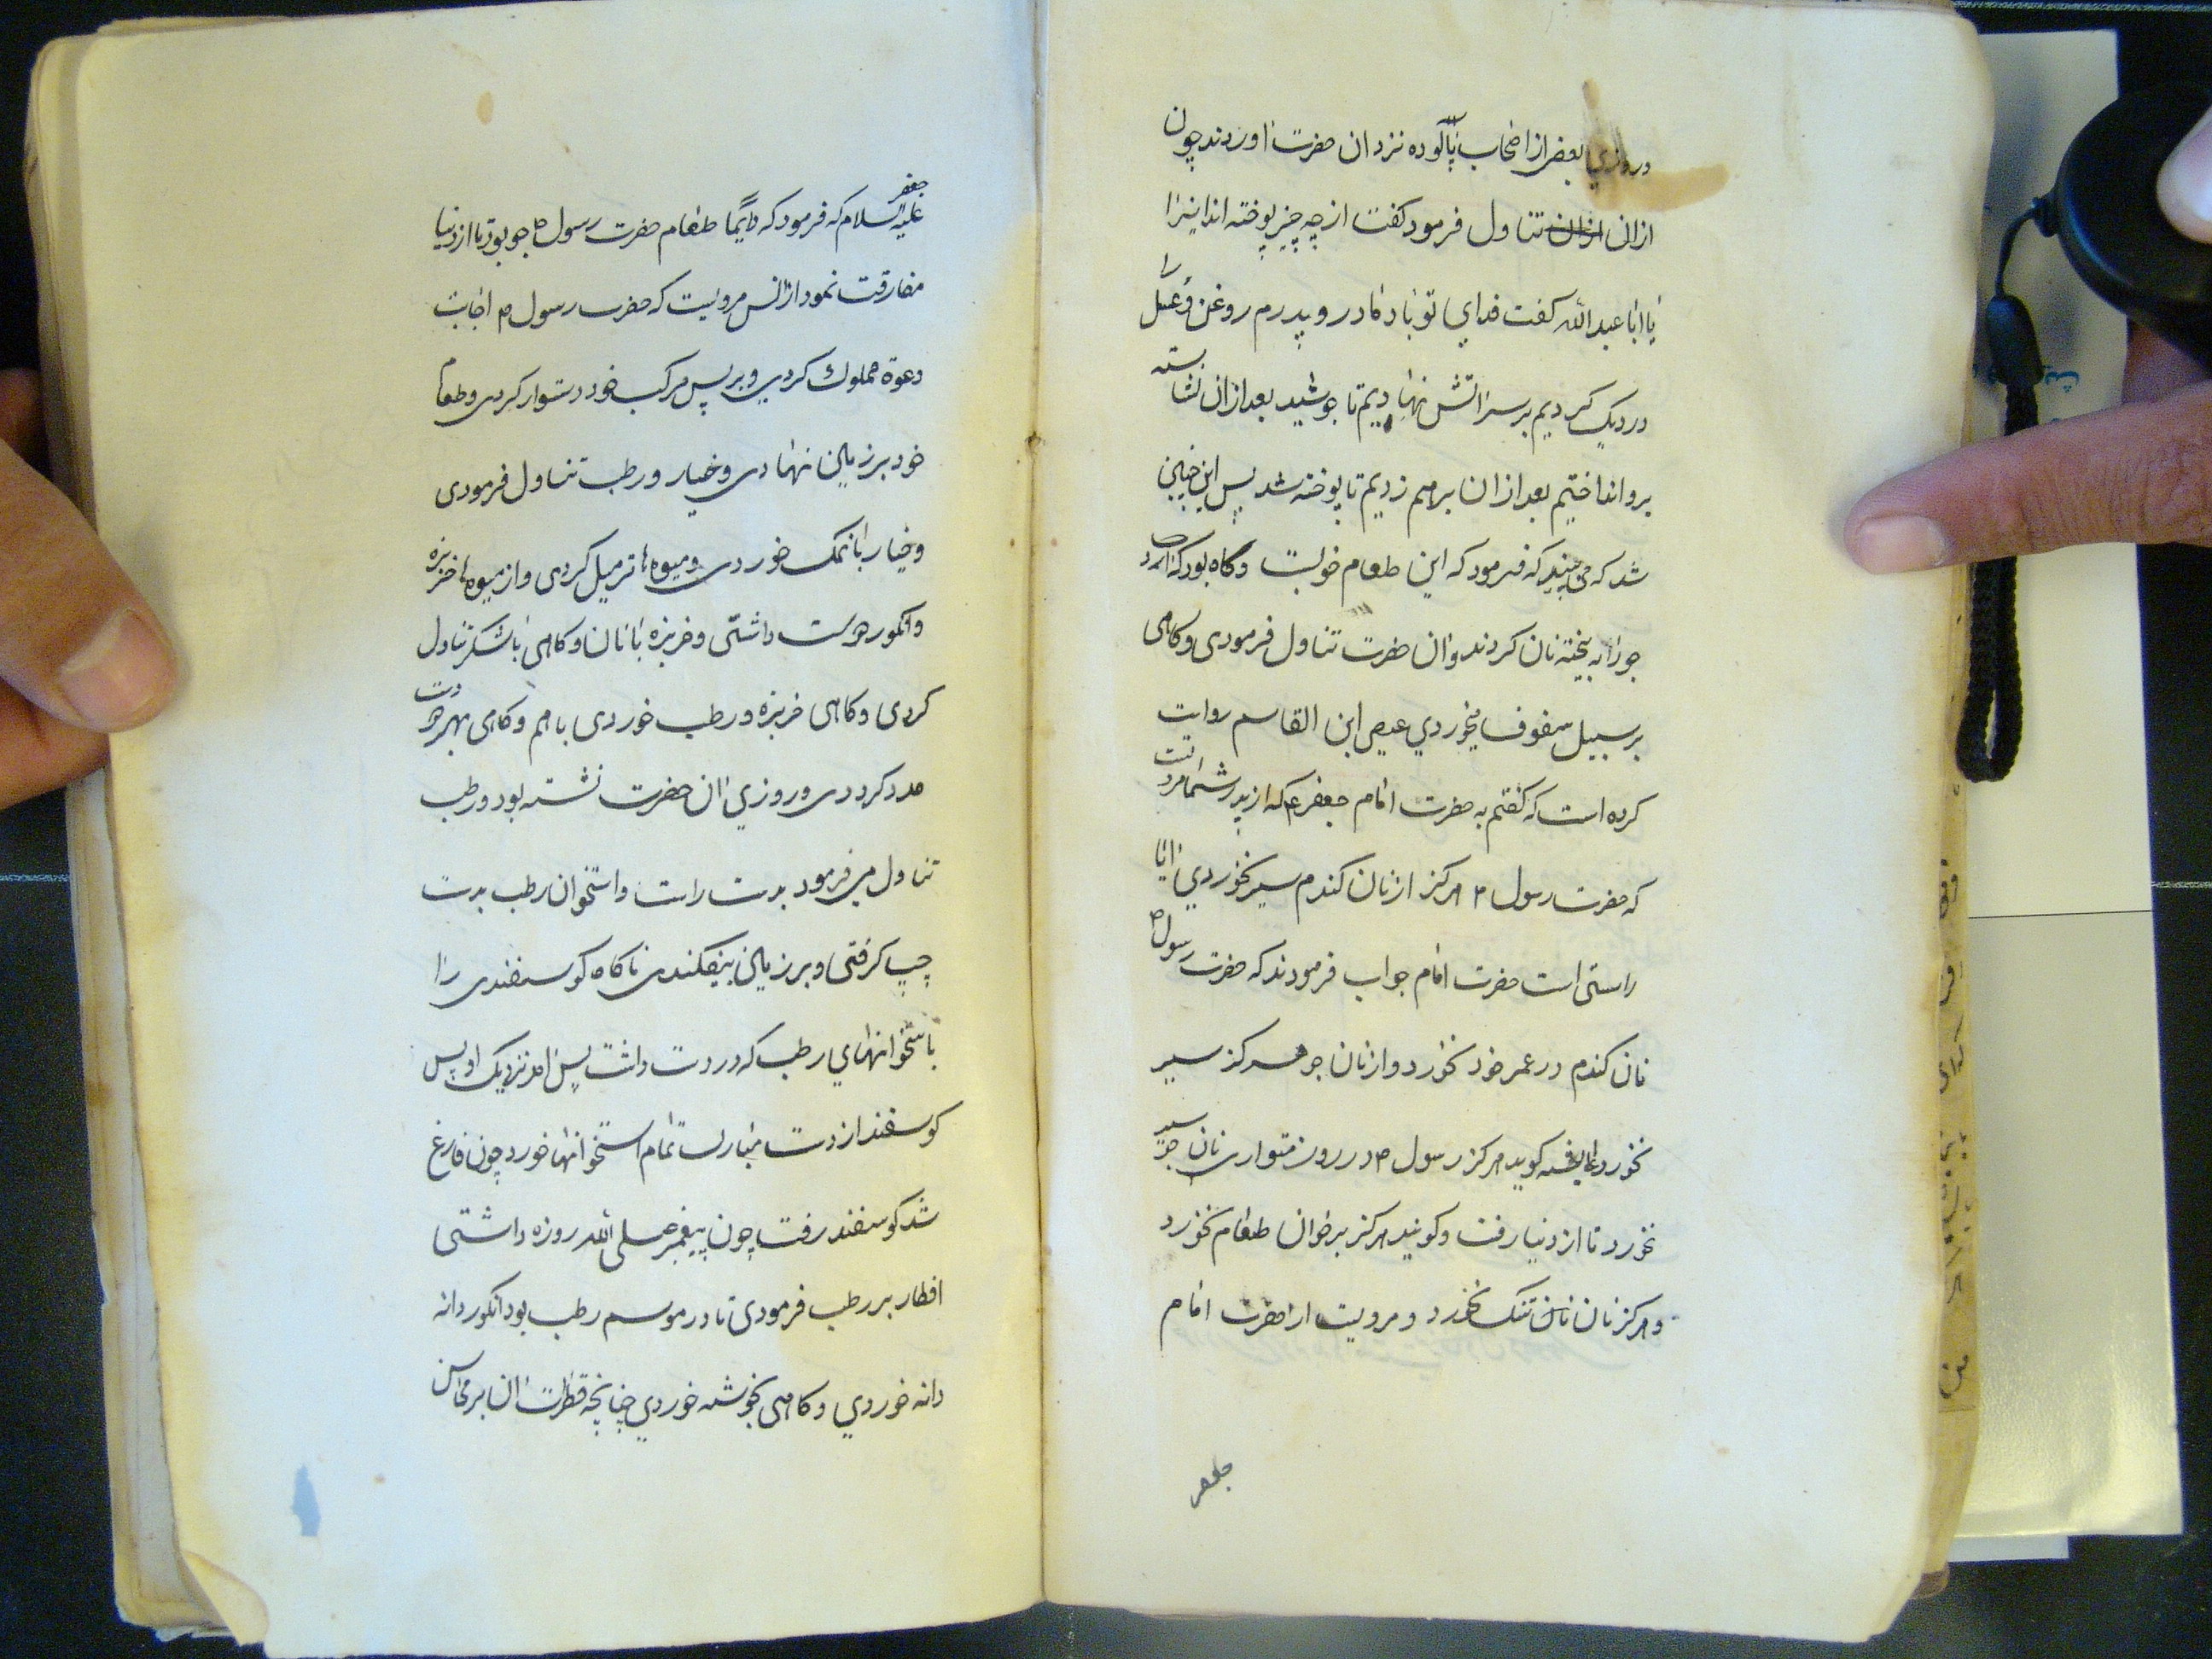 و روزي بعضر از اصحاب پالوده نزد ان حضرت اوردند چون
ازان ازان تناول فرمود كفت از چه چيز پوخته اند اينرا
يا ابا عبدالله كفت فداي تو باد مادر و پدرم روغن و عسل را
در ديك كرديم بر سر اتش نهاديم تا جوشيد بعد ازان نشاسته
برو انداختيم بعد ازان برهم زديم تا پوخته شد پس اين چنين
شد كه مى بينيد كه فرمود كه اين طعام خوبست و كاه بود كه ارد
جو نابه بيخته نان كردند و ان حضرت تناول فرمودى و كاهى
بر سبيل سفوف ميخوردي عيص ابن القاسم روايت
كرده است كه كفتم به حضرت امام جعفر ع كه از پدر شما مرويت
كه حضرت رسول م هركز از نان كندم سير نخوردي ايا
راستى است حضرت امام جواب فرمودند كه حضرت رسول م
نان كندم در عمر خود نخورد و از نان جو هركز سير
نخورد عايشه كويد هركز رسول م در روز متوارى نان جو سير
نخورد تا از دنيا رفت و كويند هركز بر خوان طعام نخورد
و هركز نان نان تنك نخورد و مرويست از حضرت امام
جعفر
جعفر
عليه السلام كه فرمود كه دايما طعام حضرت رسول م جو بود تا از دنيا
مفارقت نمود از انس مرويست كه حضرت رسول م اجابت
دعوة مملوك كردي و بر پس مركب خود رستوار كردى و طعام
خود بر زمين نهادى و خيار و رطب تناول فرمودى
و خيار با نمك خوردى و ميوه ها تر ميل كردى و از ميوه ها خربزه
و انكور دوست داشتى و خربزه با نان و كاهى با شكر تناول
كردى و كاهى خربزه و رطب خوردى با هم و كاهى بهر دو دست
مدد كردى و روزي ان حضرت نشسته بود و رطب
تناول مى فرمود بدست راست و استخوان رطب بدست
چپ كرفتى و بر زمين بيفكندى ناكاه كوسفندى را
با ستخوانهاي رطب كه در دست داشت پس امد نزديك او پس
كوسفند از دست مبارك تمام استخوانها خورد چون فارغ
شد كوسفند رفت چون پيغمبر صلى الله روزه داشتى
افطار بر رطب فرمودى تا در موسم رطب بود انكور دانه
دانه خوردي و كاهى بخوشه خوردي چنانچه قطرات ان بر محاسن